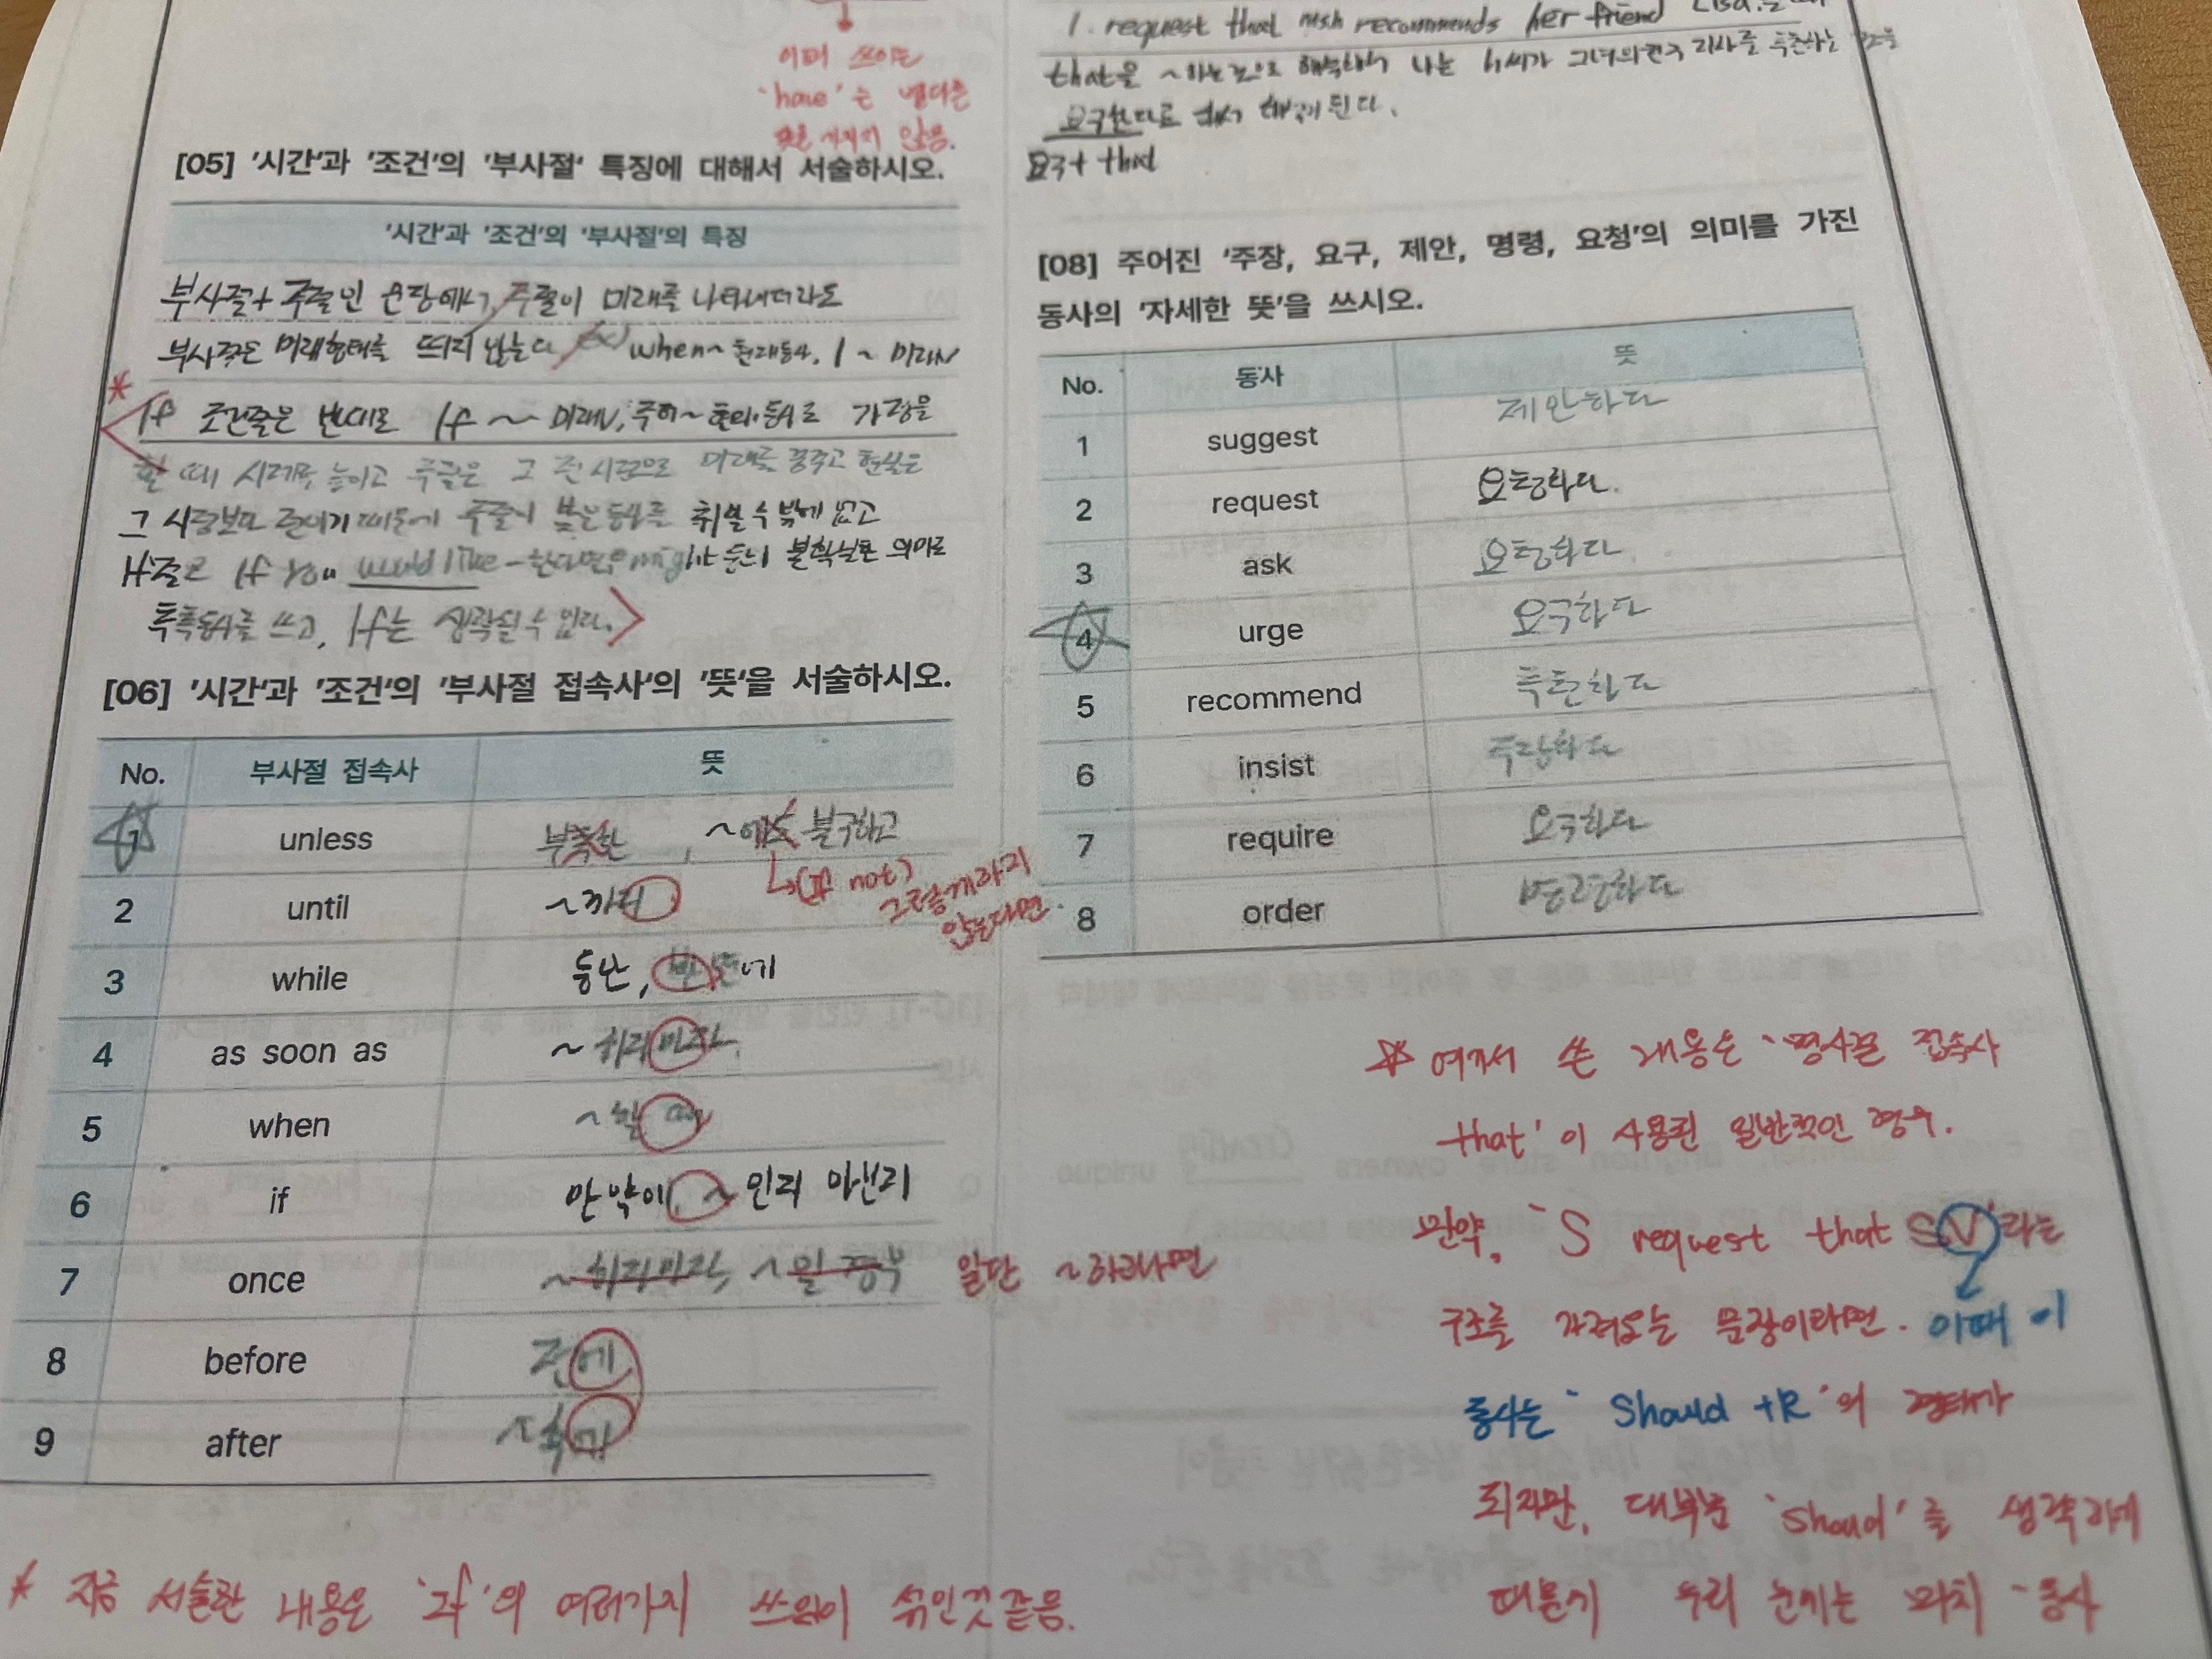 이때 쓰이는
'have'는 별다른
뜻을 가지지 않음.
[05] '시간'과 '조건'의 '부사절' 특징에 대해서 서술하시오.
'시간'과 '조건'의 '부사절'의 특징
부사절+주절인 문장에서, 주절이 미래를 나타내더라도
부사절은 미래형태를 띄지 않는다. when~ 현재동사, I ~ 미래V
* If 조건절은 반대로 If ~ 미래V, 주어~ 현재동사로 가정을
할 때 시제를 높이고 주절은 그 전 시점으로 미래를 꿈꾸고 현실은
그 시점보다 전이기 때문에 주절이 낮은동사를 취할 수 밖에 없고
If절로 If you would like ~한다면, might 등의 불확실한 의미로
특수동사를 쓰고, If는 생략될 수 있다.
[06] '시간'과 '조건'의 '부사절 접속사'의 '뜻'을 서술하시오.
No. 부사절 접속사 뜻
1 unless 부족한, ~에도 불구하고
↳(If not) 그렇게하지
않는다면.
2 until ~까지
3 while 동안, 반면에
4 as soon as ~하자마자
5 when ~할 때
6 if 만약에, ~인지 아닌지
7 once ~하자마자, 일단 ~하고나면
8 before 전에
9 after ~후에
* 지금 서술한 내용은 'If'의 여러가지 쓰임이 섞인것같음.
1. request that recommends her friend
that을 ~하는 것으로 해석해서 나는 그녀의 추천하는 것을
요구한다로 해석하게 된다.
요구+ that
[08] 주어진 '주장, 요구, 제안, 명령, 요청'의 의미를 가진
동사의 '자세한 뜻'을 쓰시오.
No. 동사 뜻
1 suggest 제안하다
2 request 요청하다.
3 ask 요청하다
4 urge 요구하다
5 recommend 추천하다
6 insist 주장하다
7 require 요구하다
8 order 명령하다
☆ 여기서 쓴 내용은 '명사절 접속사
that'이 사용된 일반적인 경우.
만약, 'S request that S V'라는
구조를 가져오는 문장이라면. 이때 이
동사는 'Should +R'의 형태가
되지만, 대부분 'Should'를 생략하기
때문에 우리 눈에는 마치 '동사